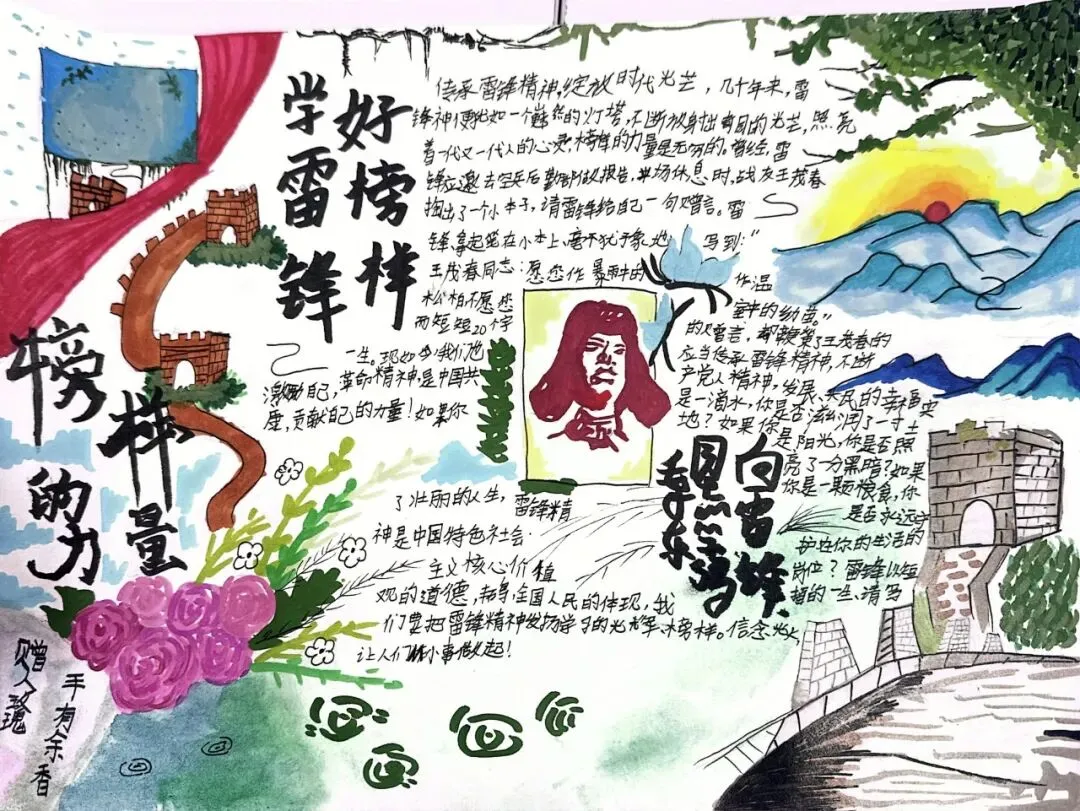 学雷锋
好榜样
传承雷锋精神,绽放时代光芒,几十年来,雷
锋神便犹如一个巍然的灯塔,不断放射出夺目的光芒,照亮
着一代又一代人的心灵,榜样的力量是无穷的。曾经,雷
锋应邀去空兵后勤部做报告,当场休息时,战友王茂春
掏出了一个小本子,请雷锋给自己一句赠言。雷
锋拿起笔在小本上,毫不犹豫地 写到:"
王茂春同志:愿您作暴雨中的 作温
松柏不愿您 室中的幼苗。"
而短短20个字 的赠言,却鞭策了王茂春的
一生。现如今我们也 应当传承雷锋精神,不断
激励自己,革命精神,是中国共 产党人精神,发展、人民的幸福
度,贡献自己的力量!如果你 是一滴水,你是否滋润了一寸土
地?如果你 是阳光,你是否照
亮了一分黑暗?如果
你是一颗粮食,你
是否永远守
护在你的生活的
岗位?雷锋以短
暂的一生,谱写
了壮丽的人生,雷锋精
神是中国特色社会
主义核心价值
观的道德,指导,全国人民的体现,我
们要把雷锋精神发扬学习的光辉榜样。信念火
让人们从小事做起!
榜样
的力量
向雷锋
同志
学习
赠人玫瑰
手有余香